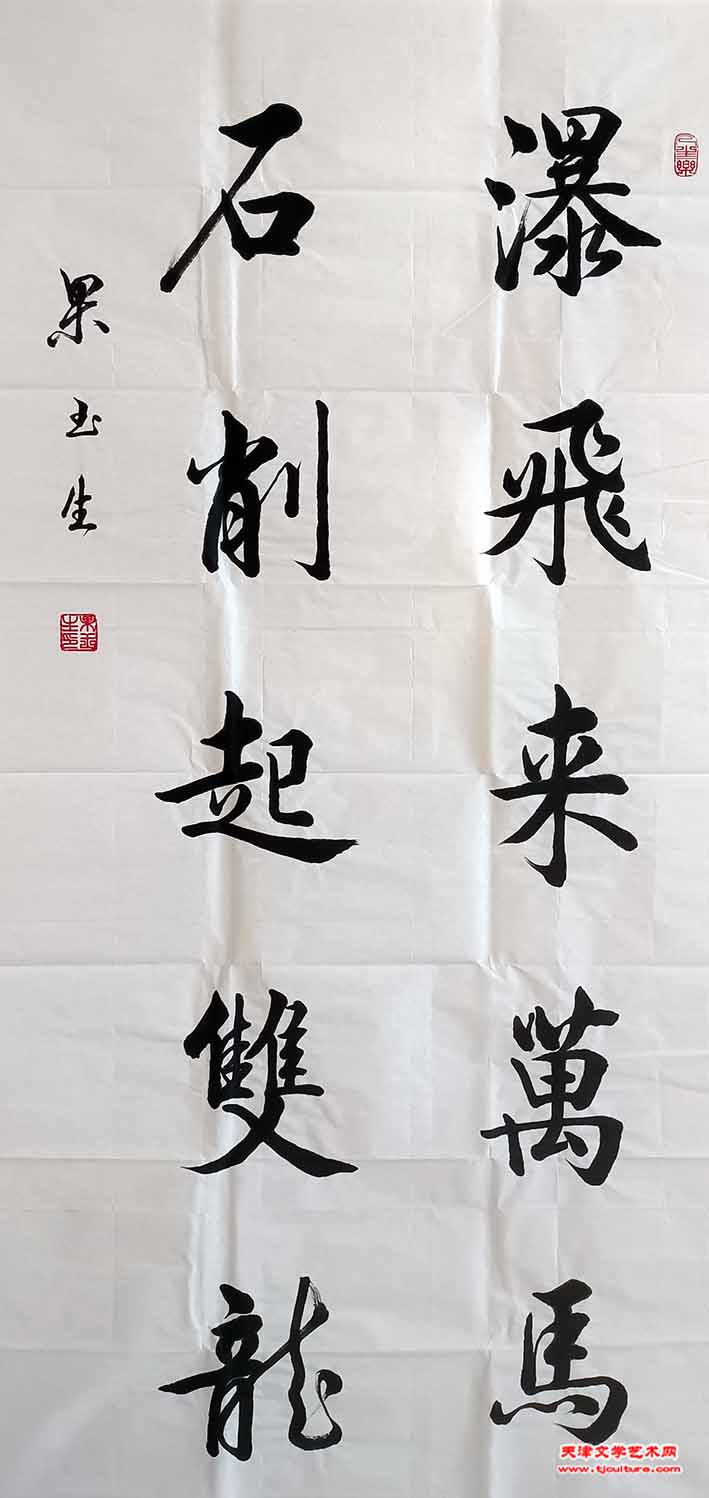 瀑飛来萬馬
石削起雙龍
果玉生
果玉生印
天津文学艺术网
www.tjculture.com